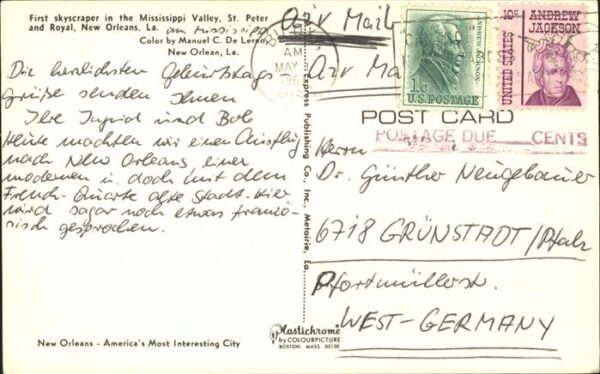 First skyscraper in the Mississippi Valley, St. Peter
and Royal, New Orleans, La.
am Mississippi
Color by Manuel C. De Lerno,
New Orleans, La.
Die herzlichsten Geburtstags-
grüße senden Ihnen
Ihre Ingrid und Bob
Heute machten wir einen Ausflug
nach New Orleans einer
modernen u. doch mit dem
French-Quarte alte Stadt. Hier
wird sogar noch etwas franzö-
sisch gesprochen.
New Orleans - America's Most Interesting City
Express Publishing Co., Inc., Metairie, La.
Plastichrome
by COLOURPICTURE
BOSTON, MASS 02130
Air Mail
Air Mail
AM
MAY
1¢
U.S. POSTAGE
ANDREW JACKSON
10c ANDREW
JACKSON
UNITED STATES
POST CARD
POSTAGE DUE CENTS
Herrn
Dr. Günther Neugebauer
6718 GRÜNSTADT/Pfalz
Pfortmüllerstr.
WEST-GERMANY